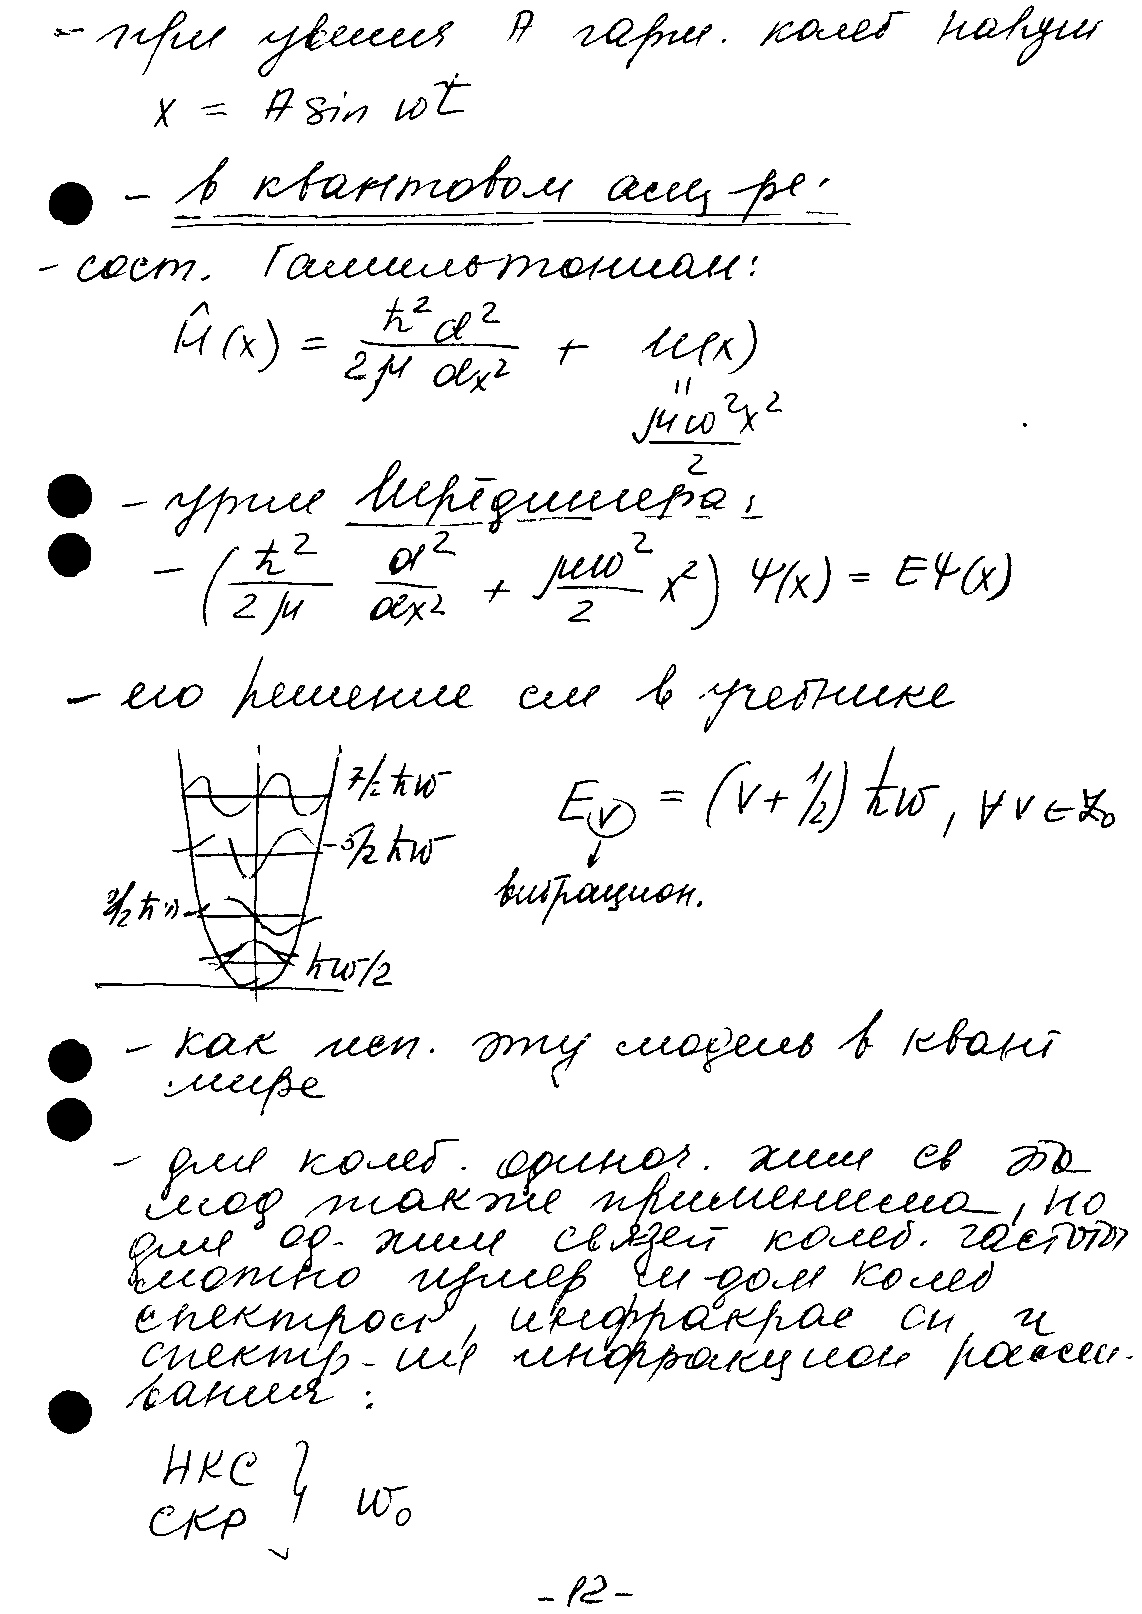 - при увения A гарм. колеб наруш
x = A sin ωt
- в квантовом осц-ре:
- сост. Гамильтониан:
Ĥ(x) = ħ² d² / 2μ dx² + U(x)
"
μω²x² / 2
- урие Шрёдингера:
- (ħ² / 2μ d² / dx² + μω² / 2 x²) Ψ(x) = EΨ(x)
- его решение см в учебнике
7/2 ħω
5/2 ħω
3/2 ħω
ħω/2
E_v = (v + 1/2) ħω, ∀ v ∈ Z₀
вибрацион.
- как исп. эту модель в квант
мире
- для колеб. одиноч. хим св эта
мод также применима, но
для од. хим связей колеб. частоты
можно измер м-дом колеб
спектроск, инфракрас сп, и
спектр-ия рассеи-
вания:
ИКС
СКР } ω₀
-12-